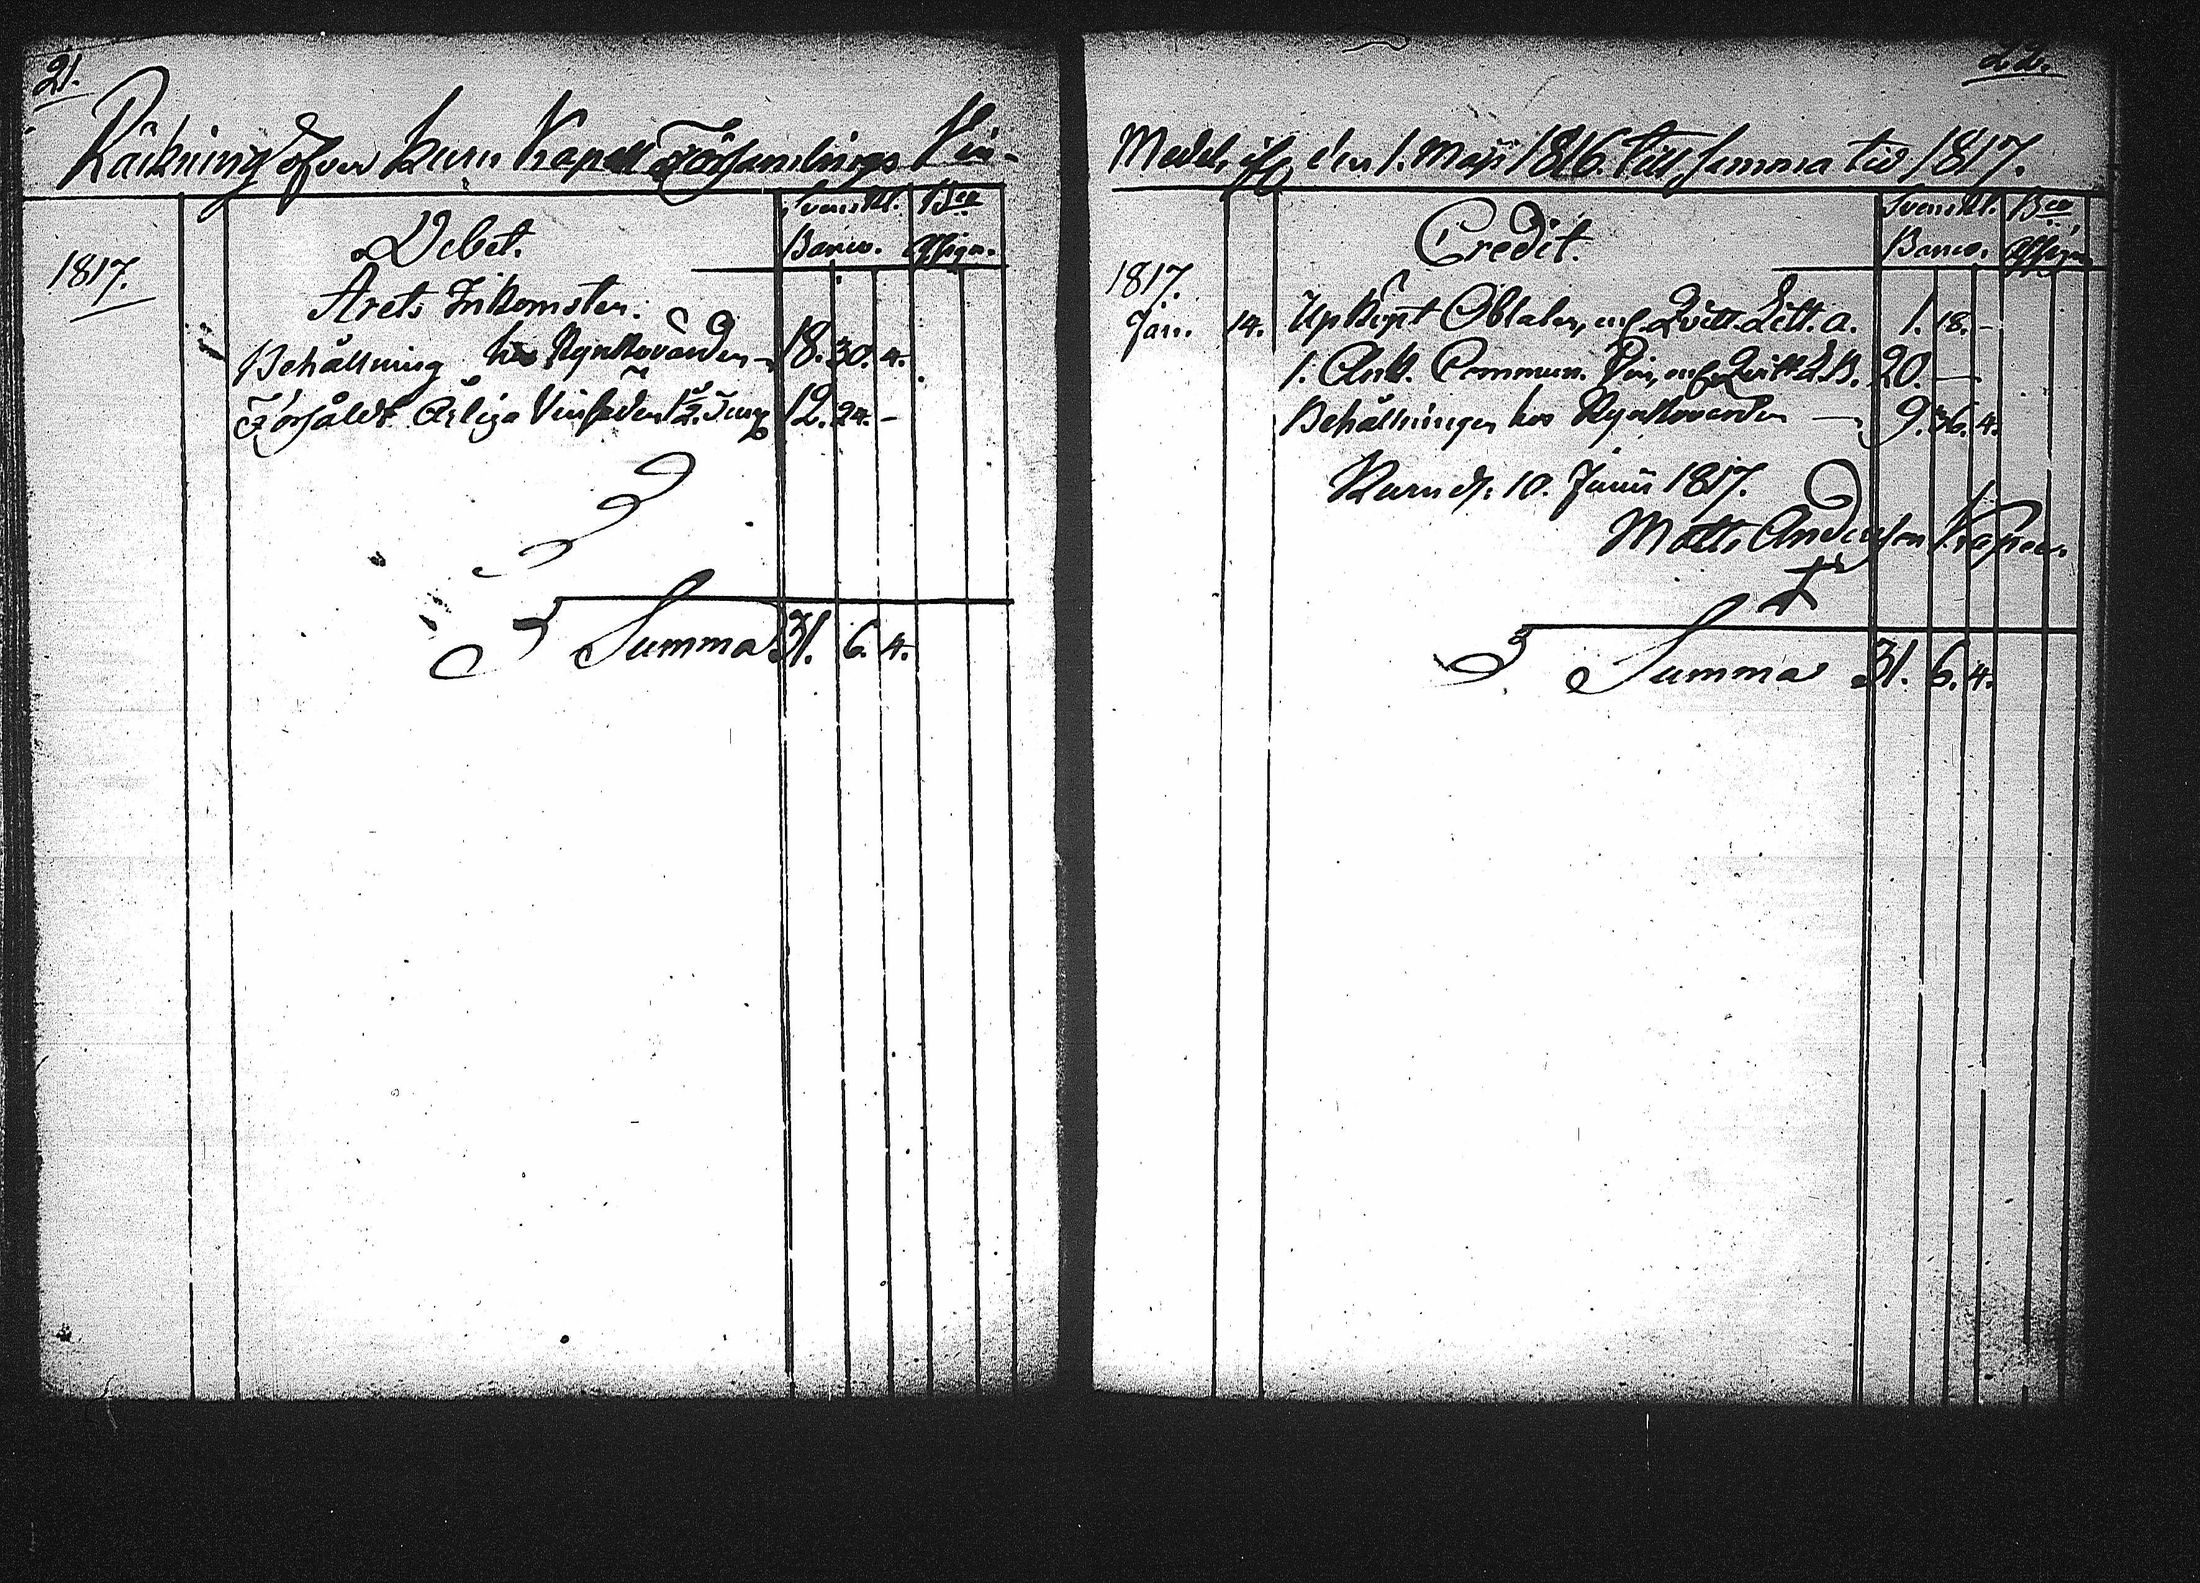 21.
Räkning öfver Kuru Kapell Församlings Vin-
Svenskt. Bco
Debet.
Banco. Assign.
1817.
Årets Inkomster.
Behållning hos Kyrkovärden 18. 30. 4.
Försåldt Årliga Vinsäden 12. 24. –
Summa 31. 6. 4.
22.
Medel, ifr. den 1. Maji 1816. till samma tid 1817.
Svenskt. Bco
Credit.
Banco. Assign.
1817.
Jan. 14. Upköpt Oblater, enl. Qvitt. Litt. a. 1. 18. –
1. Ank. Commun. Vin, enl. Qvitt L. B. 20. –
Behållningen hos Kyrkovärden — 9. 36. 4.
Kuru d. 10. Junii 1817.
Matts Andersson
Summa 31. 6. 4.